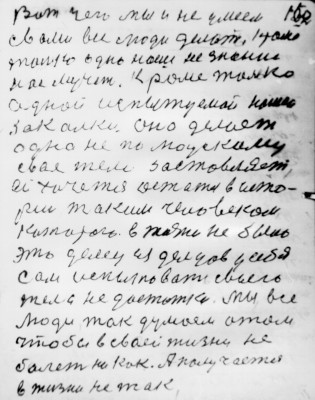 Вот чего мы и не умеем
свами все люди делат, и даже
только одно наши не знание
нас мучет. Кроме только
одной испытуемой нашей
закалки. Оно делает
одно не по
свае тело заставляет,
ей хочется остатя в исто-
рии таким человеком
которого в жизни не было
это делец из делцов у себя
сам испытовати своего
тела не достатки. Мы все
Люди так думаем о том
чтобы в своей жизни не
болет никак. А получается
в жизни не так,